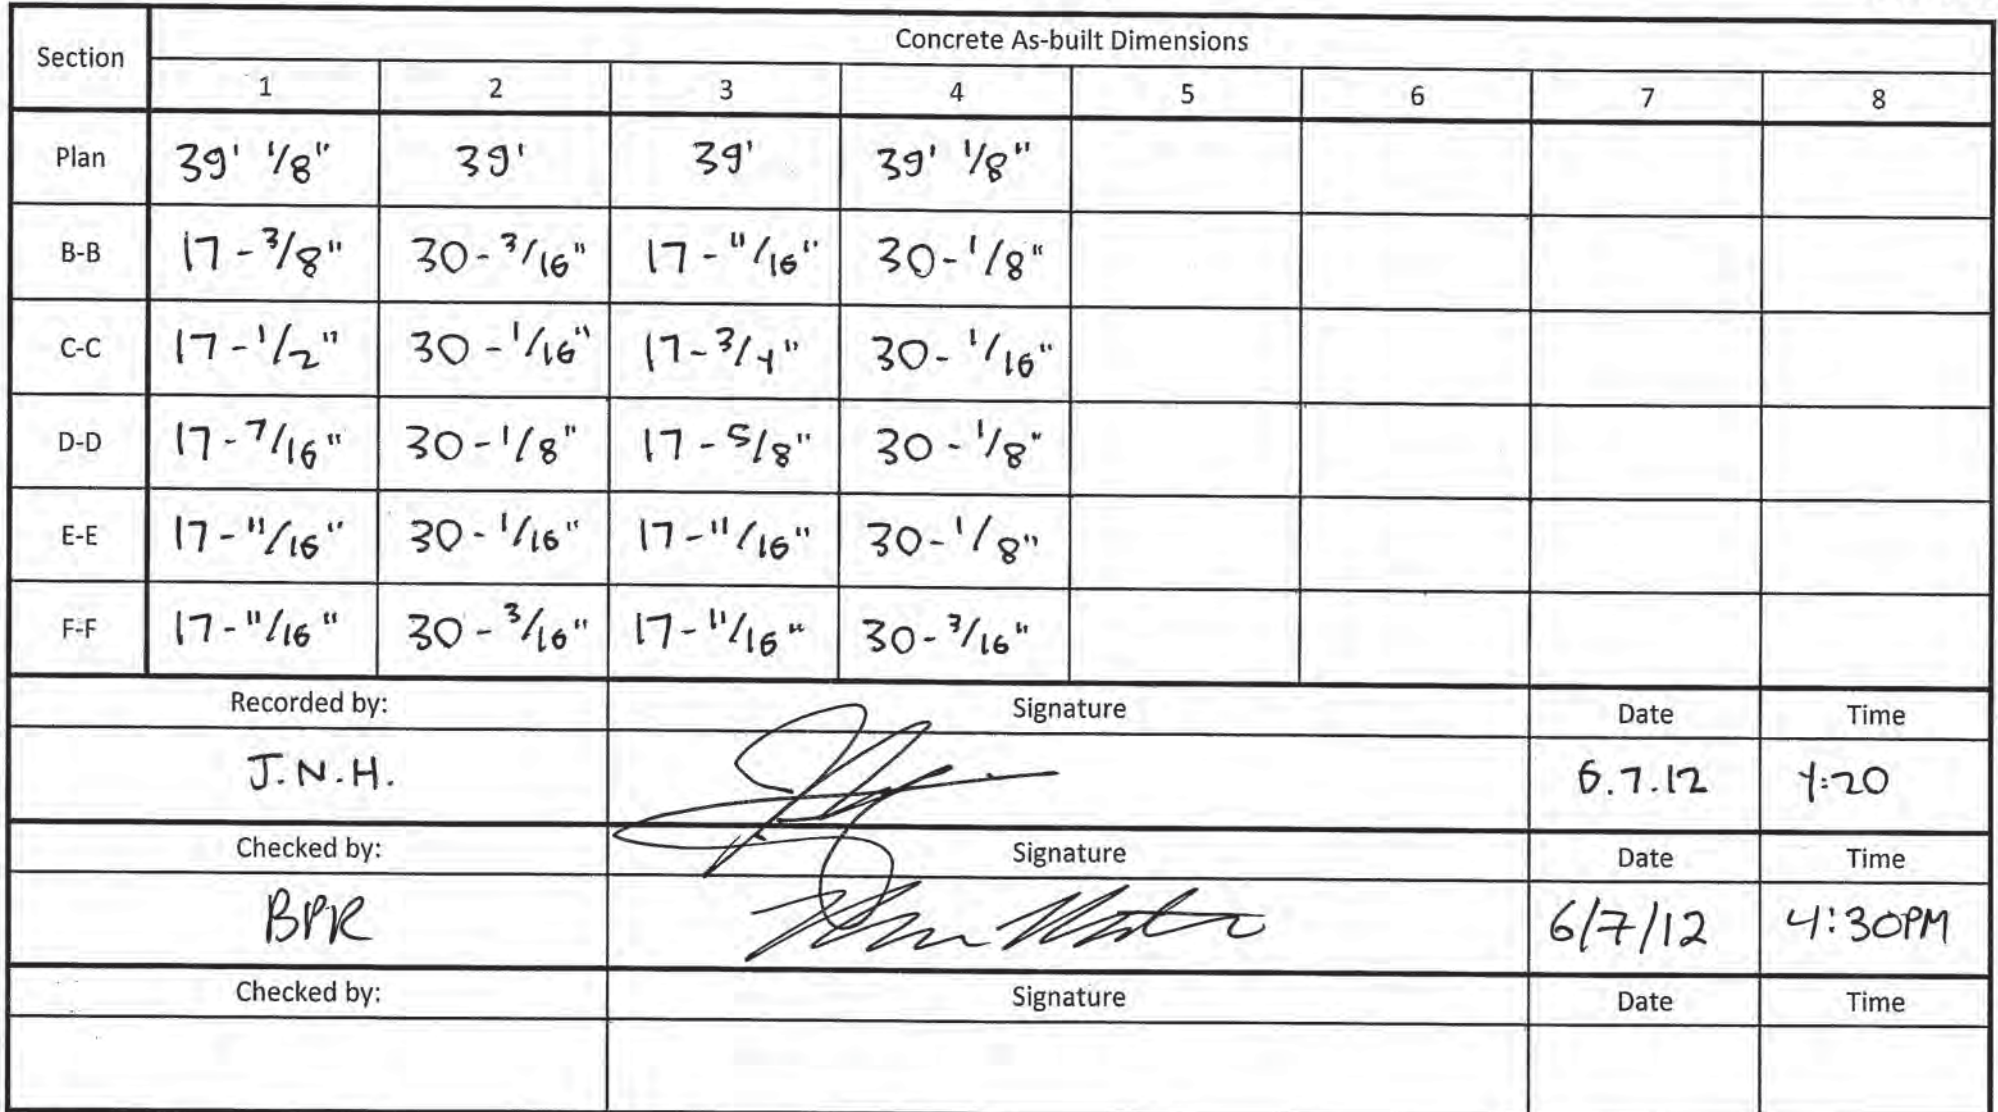 Section Concrete As-built Dimensions
1 2 3 4 5 6 7 8
Plan 39' 1/8" 39' 39' 39' 1/8"
B-B 17-3/8" 30-3/16" 17-11/16" 30-1/8"
C-C 17-1/2" 30-1/16" 17-3/4" 30-1/16"
D-D 17-7/16" 30-1/8" 17-5/8" 30-1/8"
E-E 17-11/16" 30-1/16" 17-11/16" 30-1/8"
F-F 17-11/16" 30-3/16" 17-11/16" 30-3/16"
Recorded by: Signature Date Time
J.N.H. 6.7.12 4:20
Checked by: Signature Date Time
BPR 6/7/12 4:30PM
Checked by: Signature Date Time